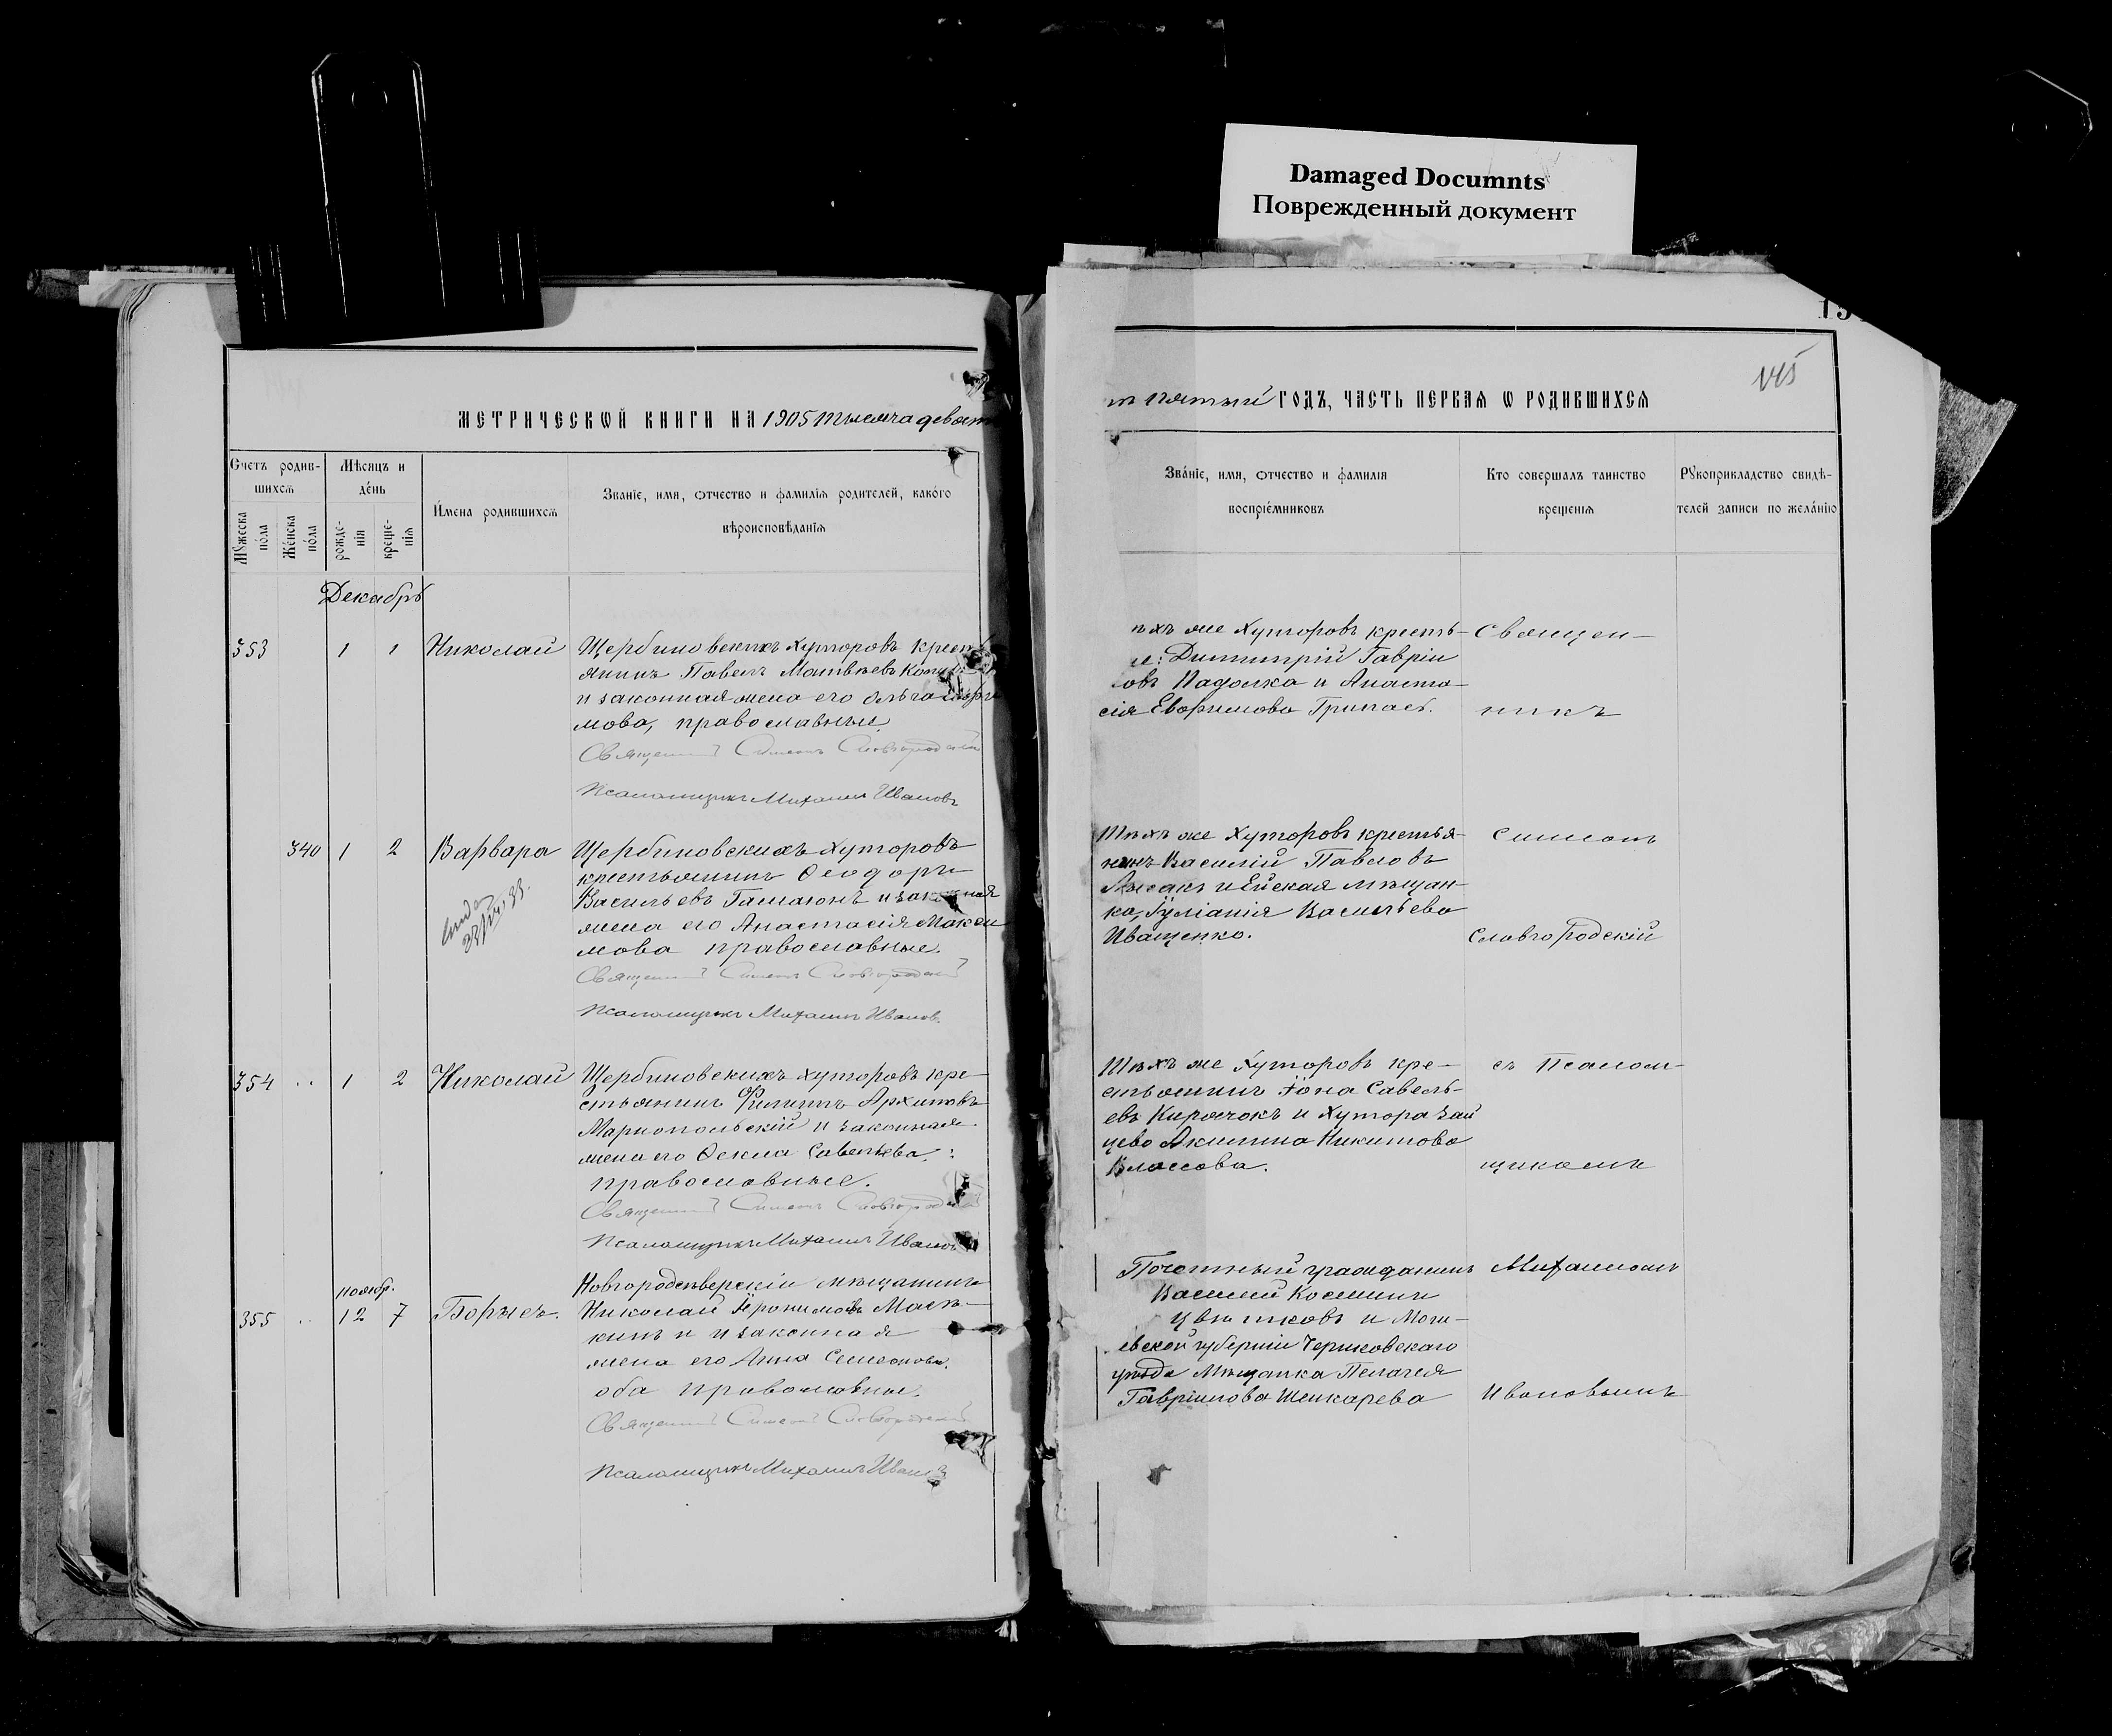 Damaged Documnts
Поврежденный документ
МЕТРИЧЕСКѠЙ КНИГИ НА 1905 тысяча девят
Счетъ родив-
шихсѧ
Мѣсяцъ и
де́нь
Мꙋжеска
по́ла
Же́нска
по́ла
рожде-
нїѧ
креще-
нїѧ
И́мена родившихсѧ
Званїе, имѧ, ѻтчество и фамилїѧ родителей, како́гѡ
вѣроисповѣданїѧ
Декабрь
353 1 1 Николай Щербиновскихъ хуторовъ крест
янинъ Павелъ Матвѣевъ
и законная жена его Ольга
мова, православные
Священникъ Симеонъ Словгородскій
Псаломщикъ Михаилъ Ивановъ
340 1 2 Варвара Щербиновскихъ хуторовъ
крестьянинъ Ѳеодоръ
Васильевъ Гамаюнъ и законная
жена его Анастасія Макси
мова православные.
Священникъ Симеонъ Словгородскій
Псаломщикъ Михаилъ Иванов.
354 .. 1 2 Николай Щербиновскихъ хуторовъ кре-
стьянинъ Филиппъ Архиповъ
Мариопольскій и законная
жена его Ѳекла Савельева
православные.
Священникъ Симеонъ Словгородскій
Псаломщикъ Михаилъ Ивановъ
ноябр.
355 .. 12 7 Борисъ. Новгородсѣверскій мѣщанинъ
Николай
и законная
жена его Анна Семеонова.
оба православные.
Священникъ Симеонъ Словгородскій
Псаломщикъ Михаилъ Ивановъ
145
пятый ГОДЪ, ЧАСТЬ ПЕРВАѦ Ѡ РОДИВШИХСѦ
Зва́нїе, имѧ, ѻтчество и фамилїѧ
воспрїе́мниковъ
Кто совершалъ таинство
крещенїѧ
Рꙋкоприкладство свидѣ-
телей записи по жела́нїю
ѣхъ же хуторовъ кресть- Священ-
Димитрій Гаврiи
овъ Падалка и Анаста-
сія Евфимова никъ
Тѣхъ же хуторовъ крестья- Симеонъ
нинъ Василій Павловъ
и Ейская мѣщан-
ка, Іуліанія Васильева
Иващенко. Словгородскій
Тѣхъ же хуторовъ кре- съ Псалом-
стьянинъ Іона Савель-
евъ Кирячокъ и хутора Зай
цево Акилина Никитова
Власова. щикомъ
Почетный гражданинъ Михаиломъ
Василій Косминъ
Цвѣтковъ и Моги-
евской губерніи Чериковскаго
уѣзда Мѣщанка Пелагея
Гавріилова Шенкарева Ивановымъ